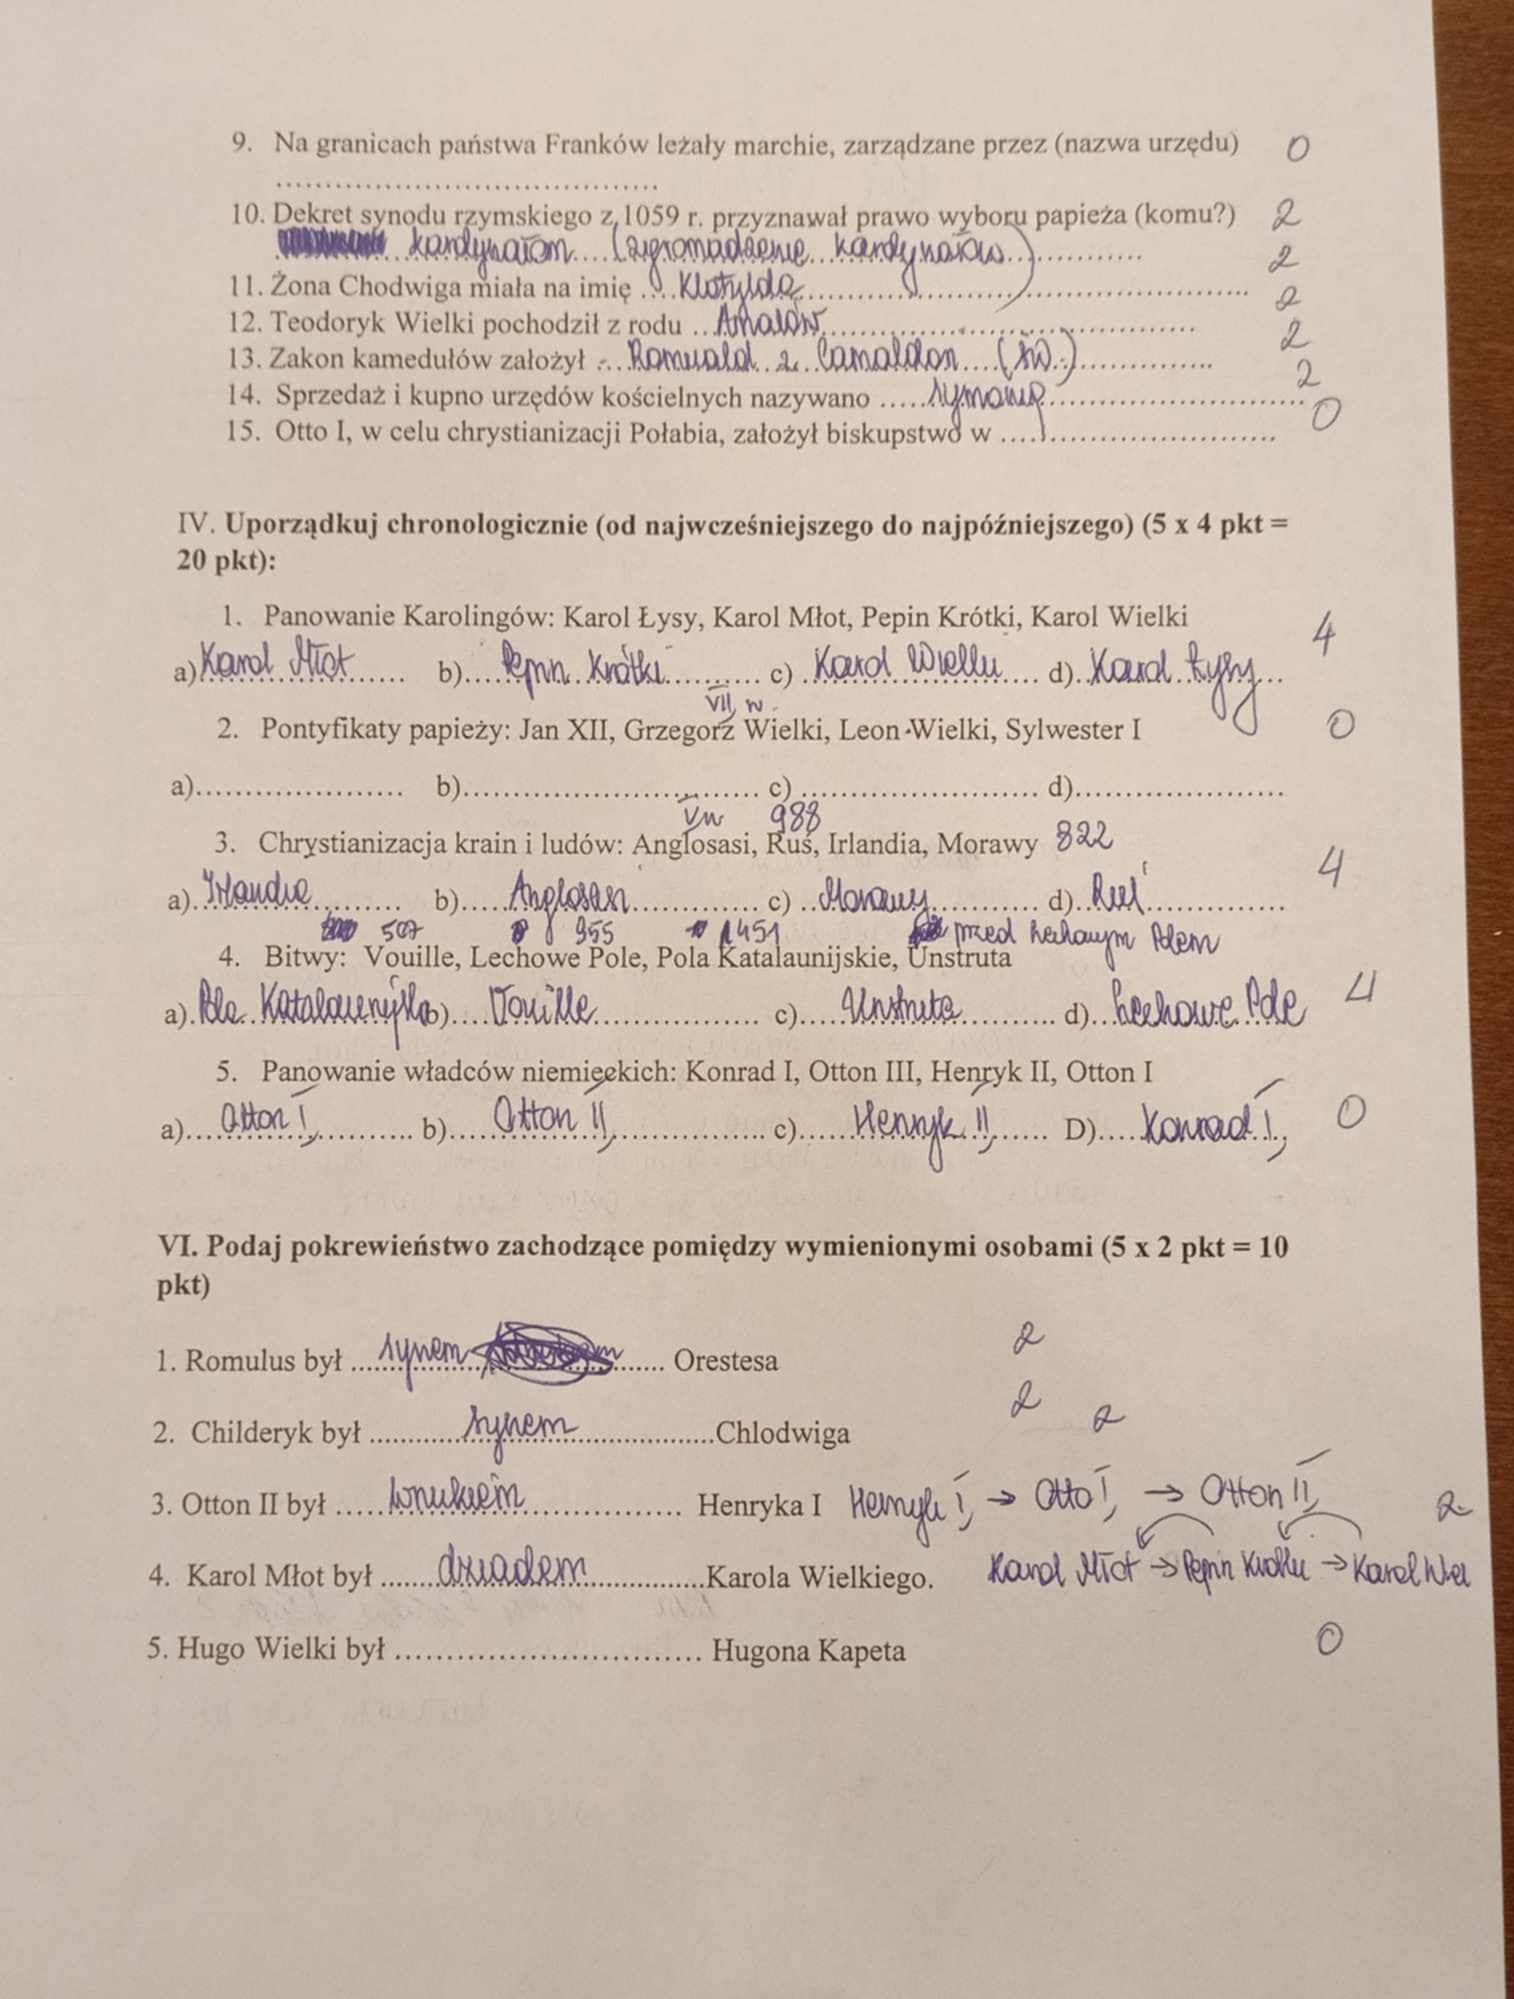 9. Na granicach państwa Franków leżały marchie, zarządzane przez (nazwa urzędu) 0
......................................
10. Dekret synodu rzymskiego z 1059 r. przyznawał prawo wyboru papieża (komu?) 2
kardynałom (zgromadzenie kardynałów) 2
11. Żona Chodwiga miała na imię Klotylda 2
12. Teodoryk Wielki pochodził z rodu Amalów 2
13. Zakon kamedułów założył Romuald z Camaldon (św.) 2
14. Sprzedaż i kupno urzędów kościelnych nazywano symonią
15. Otto I, w celu chrystianizacji Połabia, założył biskupstwo w ............................ 0
IV. Uporządkuj chronologicznie (od najwcześniejszego do najpóźniejszego) (5 x 4 pkt =
20 pkt):
1. Panowanie Karolingów: Karol Łysy, Karol Młot, Pepin Krótki, Karol Wielki 4
a) Karol Młot b) Pepin Krótki c) Karol Wielki d) Karol Łysy
VII w.
2. Pontyfikaty papieży: Jan XII, Grzegorz Wielki, Leon Wielki, Sylwester I 0
a)..................... b).............................. c)........................ d).....................
V w 988
3. Chrystianizacja krain i ludów: Anglosasi, Ruś, Irlandia, Morawy 822
a) Irlandia b) Anglosasi c) Morawy d) Ruś 4
507 955 451 przed Lechowym Polem
4. Bitwy: Vouille, Lechowe Pole, Pola Katalaunijskie, Unstruta
a) Pola Katalaunijskie b) Vouille c) Unstruta d) Lechowe Pole 4
5. Panowanie władców niemieckich: Konrad I, Otton III, Henryk II, Otton I
a) Otton I b) Otton II c) Henryk II D) Konrad I 0
VI. Podaj pokrewieństwo zachodzące pomiędzy wymienionymi osobami (5 x 2 pkt = 10
pkt)
1. Romulus był synem Orestesa 2
2. Childeryk był synem Chlodwiga 2 2
3. Otton II był wnukiem Henryka I Henryk I → Otto I → Otton II 2
4. Karol Młot był dziadem Karola Wielkiego. Karol Młot → Pepin Krótki → Karol Wiel
5. Hugo Wielki był ............................... Hugona Kapeta 0